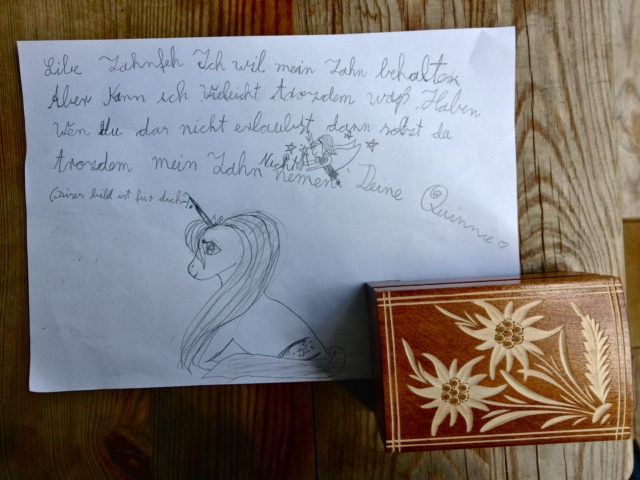 Libe Zahnfeh Ich wil mein Zahn behalten
Aber Kann ich Vieleicht trozdem waß Haben
Wen du das nicht erlaubst dann solst du
trozdem mein Zahn Nicht nemen! Deine Quinnie
(Dises bild ist für dich)